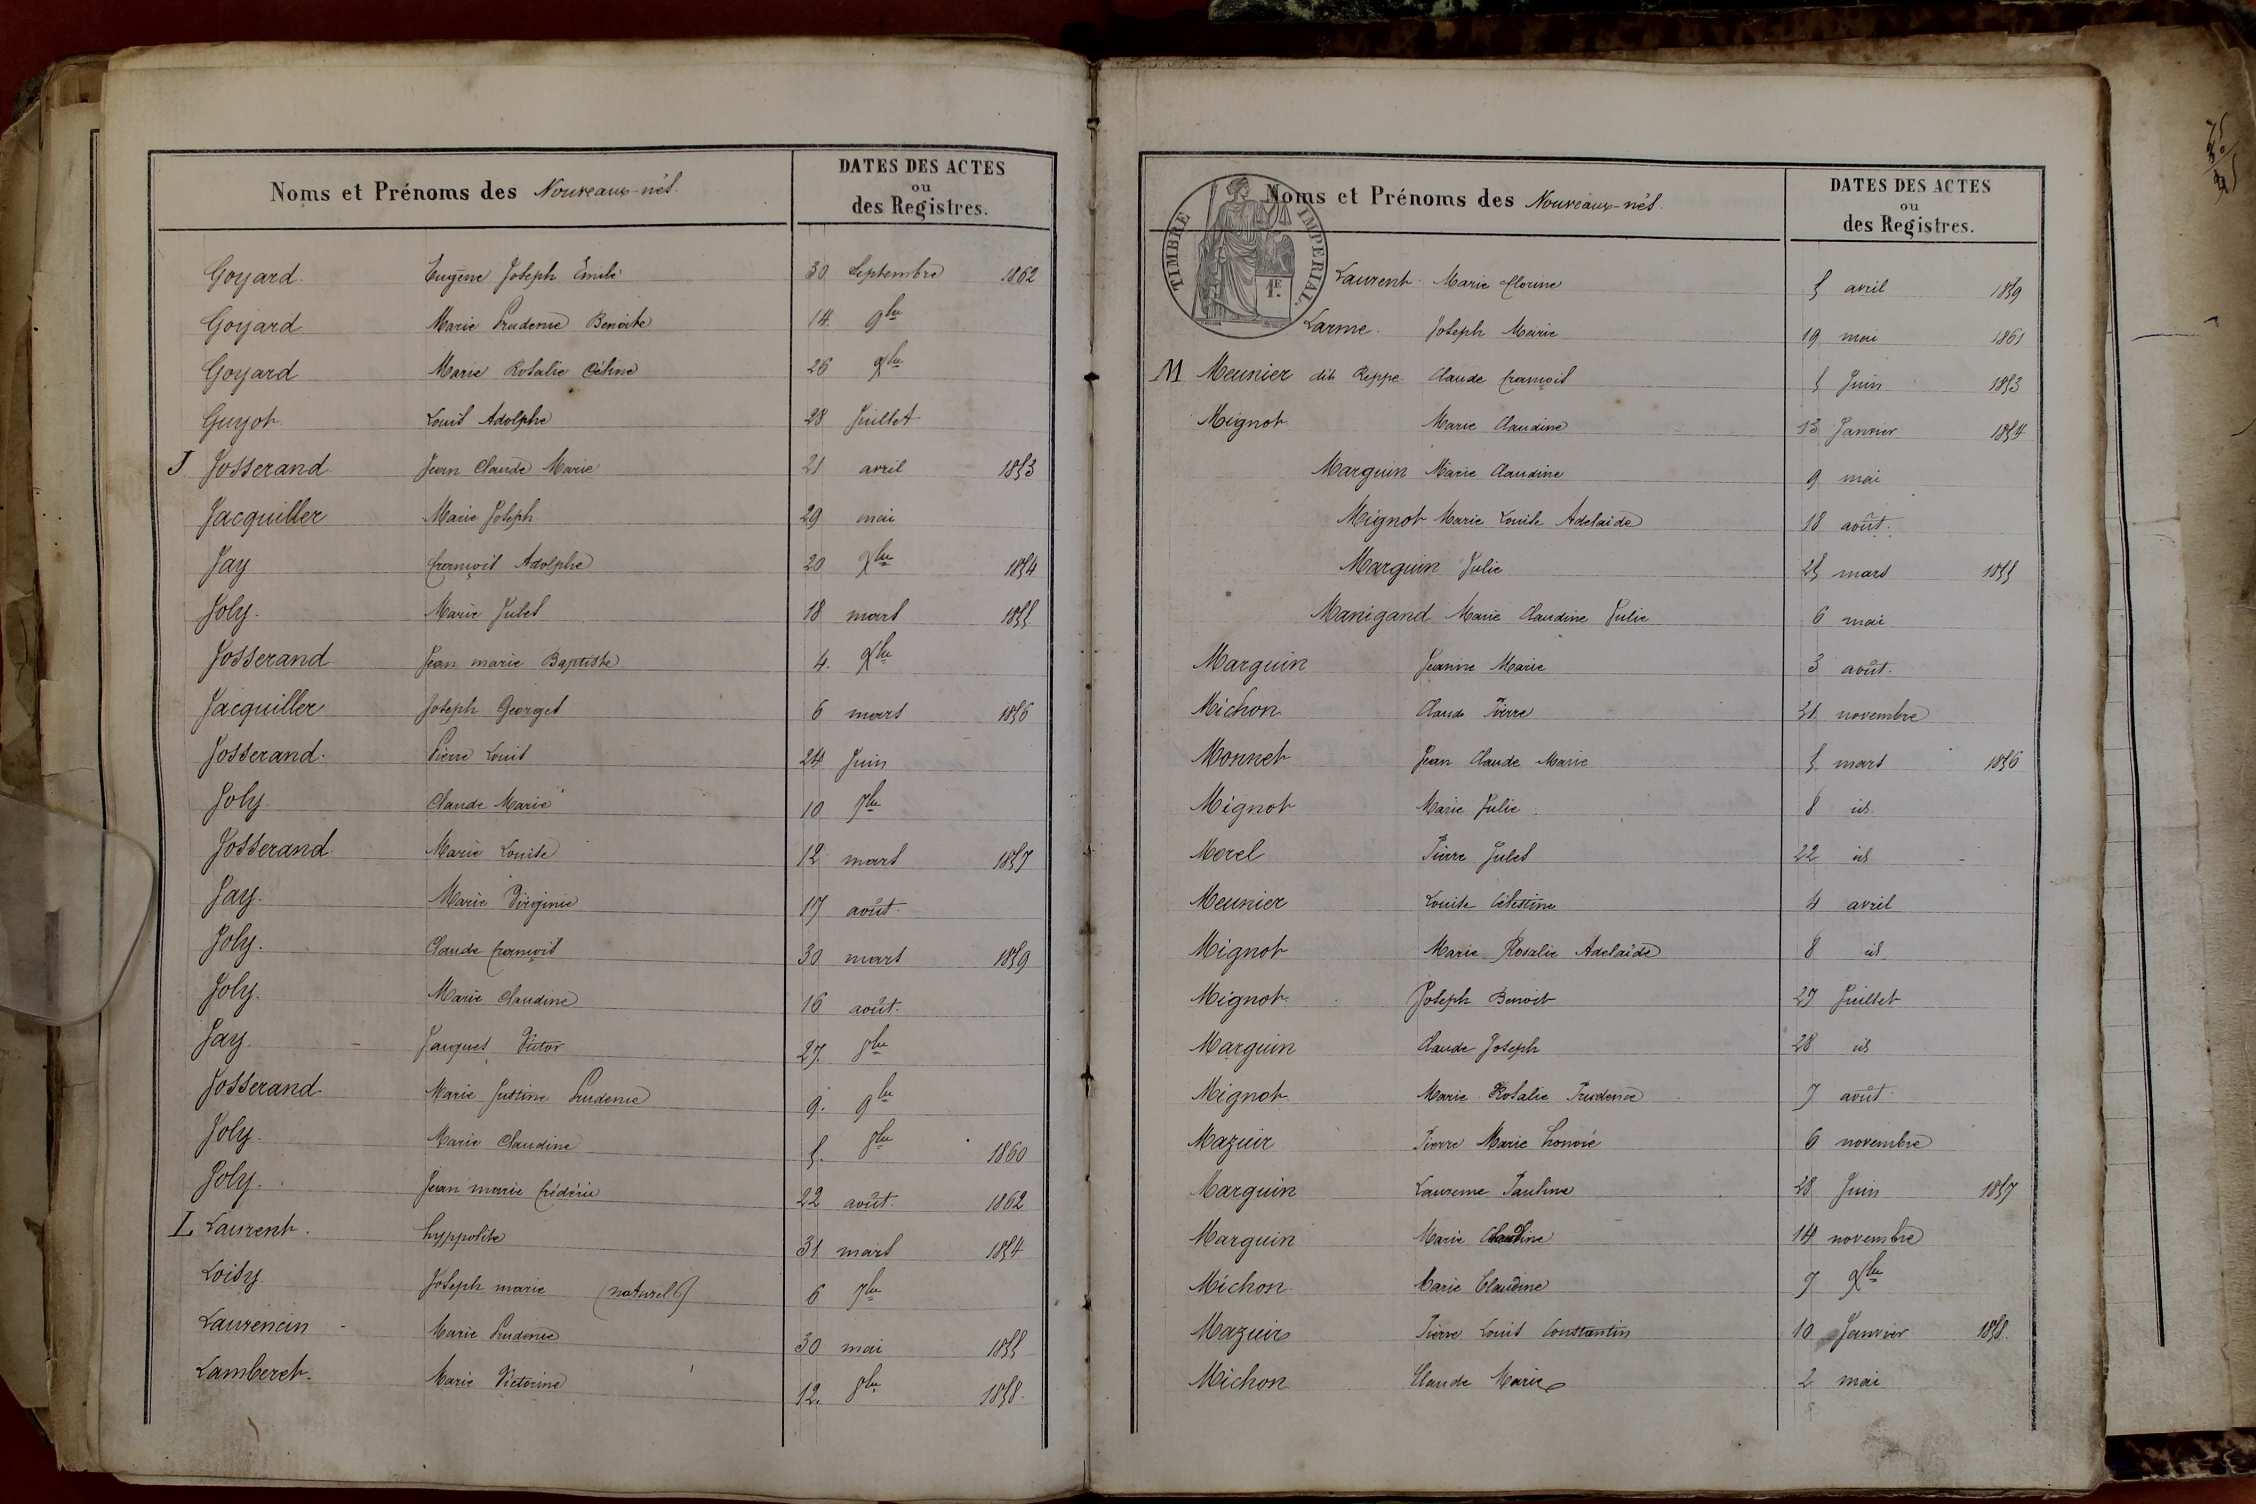 Noms et Prénoms des Nouveaux-nés.
DATES DES ACTES
ou
des Registres.
Goyard Eugène Joseph Emile 30 Septembre 1862
Goyard Marie Prudence Benoite 14 9bre
Goyard Marie Rosalie Céline 26 Xbre
Guyot Louis Adolphe 28 Juillet
J Josserand Jean Claude Marie 21 avril 1853
Jacquiller Marie Joseph 29 mai
Jay françois Adolphe 20 Xbre 1854
Joly. Marie Jules 18 mars 1855
Josserand Jean marie Baptiste 4. Xbre
Jacquiller Joseph Georges 6 mars 1856
Josserand. Pierre Louis 24 Juin
Joly. Claude Marie 10 7bre
Josserand Marie Louise 12 mars 1857
Jay. Marie Virginie 17 août.
Joly. Claude françois 30 mars 1859
Joly. Marie Claudine 16 août.
Jay Jacques Victor 27. 8bre
Josserand Marie Justine Prudence 9. 9bre
Joly. Marie Claudine 5. 8bre 1860
Joly. Jean marie frédéric 22 août. 1862
L Laurent. hyppolite 31 mars 1854
Loisy Joseph marie (naturel) 6 7bre
Laurencin Marie Prudence 30 mai 1855
Lamberet. Marie Victorine 12. 8bre 1858.
Noms et Prénoms des Nouveaux-nés.
DATES DES ACTES
ou
des Registres.
TIMBRE IMPERIAL.
1E.
Laurent Marie florine 5 avril 1859
Larme. Joseph Marie 19 mai 1861
M Meunier dit Reppe Claude françois 5 Juin 1853
Mignot Marie Claudine 13 Janvier 1854
Marguin Marie Claudine 9 mai
Mignot Marie Louise Adelaïde 18 août.
Marguin Julie 25 mars 1855
Manigand Marie Claudine Julie 6 mai
Marguin Jeanne Marie 3 août.
Michon Claude Pierre novembre
Monnet Jean Claude Marie 5 mars 1856
Mignot Marie Julie 8 id
Morel Pierre Jules 22 id
Meunier Louise Célestine 4 avril
Mignot Marie Rosalie Adelaïde 8 id
Mignot Joseph Benoit 27 Juillet
Marguin Claude Joseph 28 id
Mignot Marie Rosalie Prudence 7 août
Mazuir Pierre Marie honoré 6 novembre
Marguin Laurence Pauline 28 Juin 1857
Marguin Marie Claudine 14 novembre
Michon Marie Claudine 7 Xbre
Mazuir Pierre Louis Constantin 10 Janvier 1858.
Michon Claude Marie 2 mai